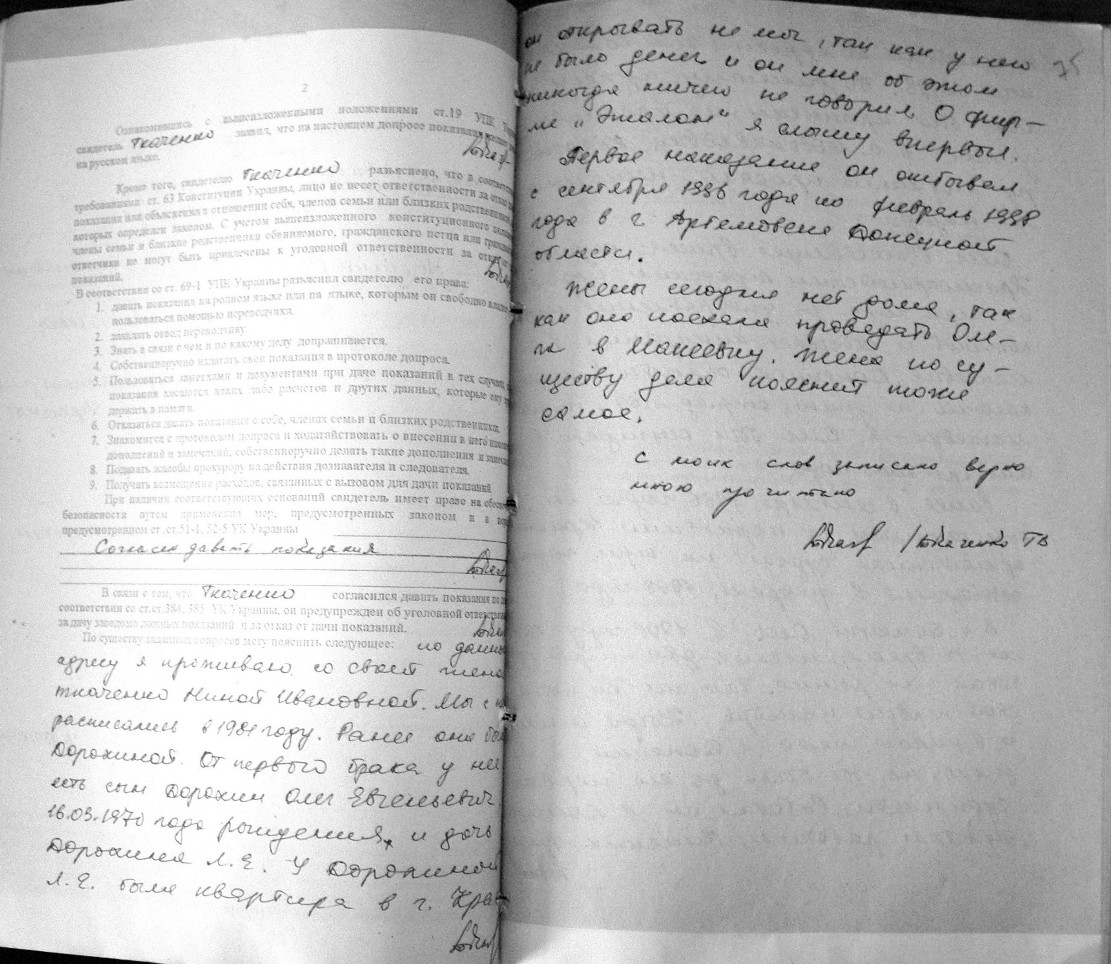 2
Ознакомившись с вышеизложенными положениями ст.19 УПК
свидетель Ткаченко заявил, что на настоящем допросе показания
на русском языке.
Кроме того, свидетелю Ткаченко разъяснено, что в
требованиями ст. 63 Конституции Украины, лицо не несет ответственности за отказ
показания или объяснения в отношении себя, членов семьи или близких родственников
которых определен законом. С учетом вышеизложенного конституционного
члены семьи и близкие родственники обвиняемого, гражданского истца или
ответчика не могут быть привлечены к уголовной ответственности за отказ
показаний.
В соответствии со ст. 69-1 УПК Украины разъяснил свидетелю его права:
1. давать показания на родном языке или на языке, которым он свободно
пользоваться помощью переводчика.
2. заявлять отвод переводчику.
3. Знать в связи с чем и по какому делу допрашивается.
4. Собственноручно излагать свои показания в протоколе допроса.
5. Пользоваться заметками и документами при даче показаний в тех случаях
показания касаются каких либо расчетов и других данных, которые ему
держать в памяти.
6. Отказаться давать показания о себе, членах семьи и близких родственниках.
7. Знакомится с протоколом допроса и ходатайствовать о внесении в него
дополнений и замечаний, собственноручно делать такие дополнения и
8. Подавать жалобы прокурору на действия дознавателя и следователя.
9. Получать возмещение расходов, связанных с вызовом для дачи показаний
При наличии соответствующих оснований свидетель имеет право на
безопасности путем применения мер, предусмотренных законом и в
предусмотренном ст.ст.51-1, 52-5 УК Украины
Согласен давать показания
В связи с тем, что Ткаченко согласился давать показания по
соответствии со ст.ст.384, 385 УК Украины, он предупрежден об уголовной
за дачу заведомо ложных показаний и за отказ от дачи показаний.
По существу заданных вопросов могу пояснить следующее: по
адресу я проживаю со своей
Ткаченко Ниной Ивановной. Мы с
расписались в 1981 году. Ранее она
Дорохиной. От первого брака у нее
есть сын Дорохин Олег Евгеньевич
16.03.1970 года рождения, и дочь
Дорохина Л.Е. У Дорохиной
Л.Е. была квартира в г. Кра
он открывать не мог, так как у него
не было денег и он мне об этом
никогда ничего не говорил. О фир-
ме "Эталон" я слышу впервые.
Первое наказание он отбывал
с сентября 1996 года по февраль 1998
года в г. Артемовске Донецкой
области.
Жены сегодня нет дома, так
как она поехала проведать Оле-
га в Макеевку. Жена по су-
ществу дела пояснит тоже
самое.
С моих слов записано верно
мною прочитано
Ткаченко ТВ